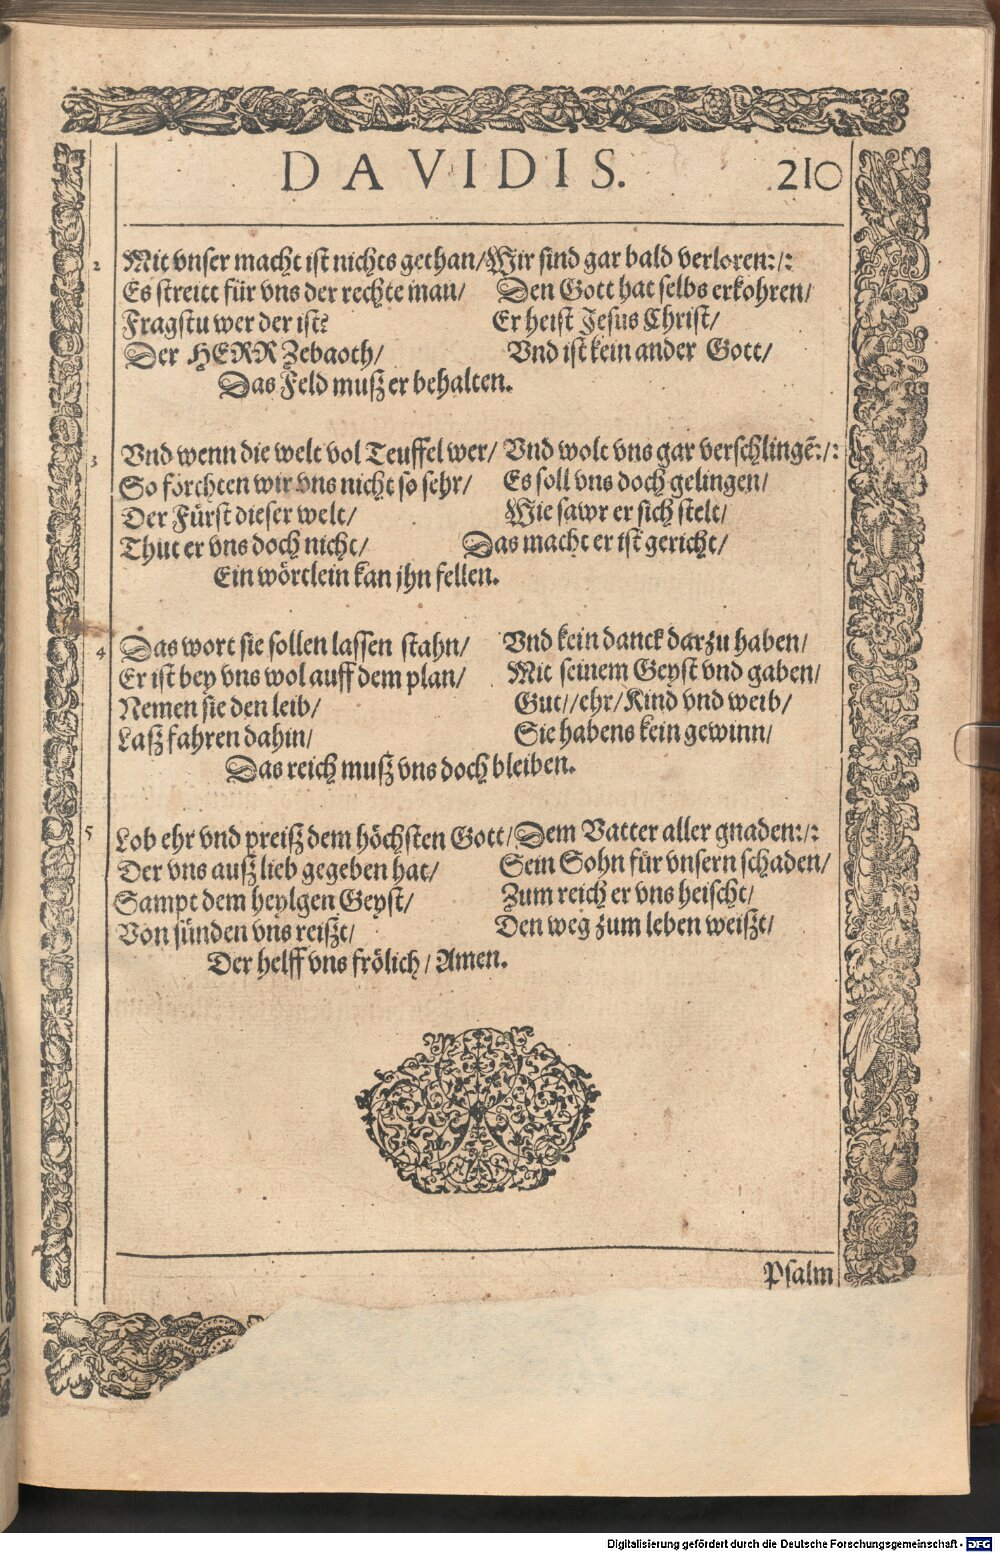 DAVIDIS. 210
2 Mit vnser macht ist nichts gethan/Wir sind gar bald verloren:/:
Es streitt für vns der rechte man/ Den Gott hat selbs erkohren/
Fragstu wer der ist? Er heist Jesus Christ/
Der HERR Zebaoth/ Vnd ist kein ander Gott/
Das Feld muß er behalten.
3 Vnd wenn die welt vol Teuffel wer/ Vnd wolt vns gar verschlingẽ:/:
So förchten wir vns nicht so sehr/ Es soll vns doch gelingen/
Der Fürst dieser welt/ Wie sawr er sich stelt/
Thut er vns doch nicht/ Das macht er ist gericht/
Ein wörtlein kan jhn fellen.
4 Das wort sie sollen lassen stahn/ Vnd kein danck darzu haben/
Er ist bey vns wol auff dem plan/ Mit seinem Geyst vnd gaben/
Nemen sie den leib/ Gut//ehr/Kind vnd weib/
Laß fahren dahin/ Sie habens kein gewinn/
Das reich muß vns doch bleiben.
5 Lob ehr vnd preiß dem höchsten Gott/Dem Vatter aller gnaden:/:
Der vns auß lieb gegeben hat/ Sein Sohn für vnsern schaden/
Sampt dem heylgen Geyst/ Zum reich er vns heischt/
Von sünden vns reißt/ Den weg zum leben weißt/
Der helff vns frölich/Amen.
Psalm
Digitalisierung gefördert durch die Deutsche Forschungsgemeinschaft - DFG